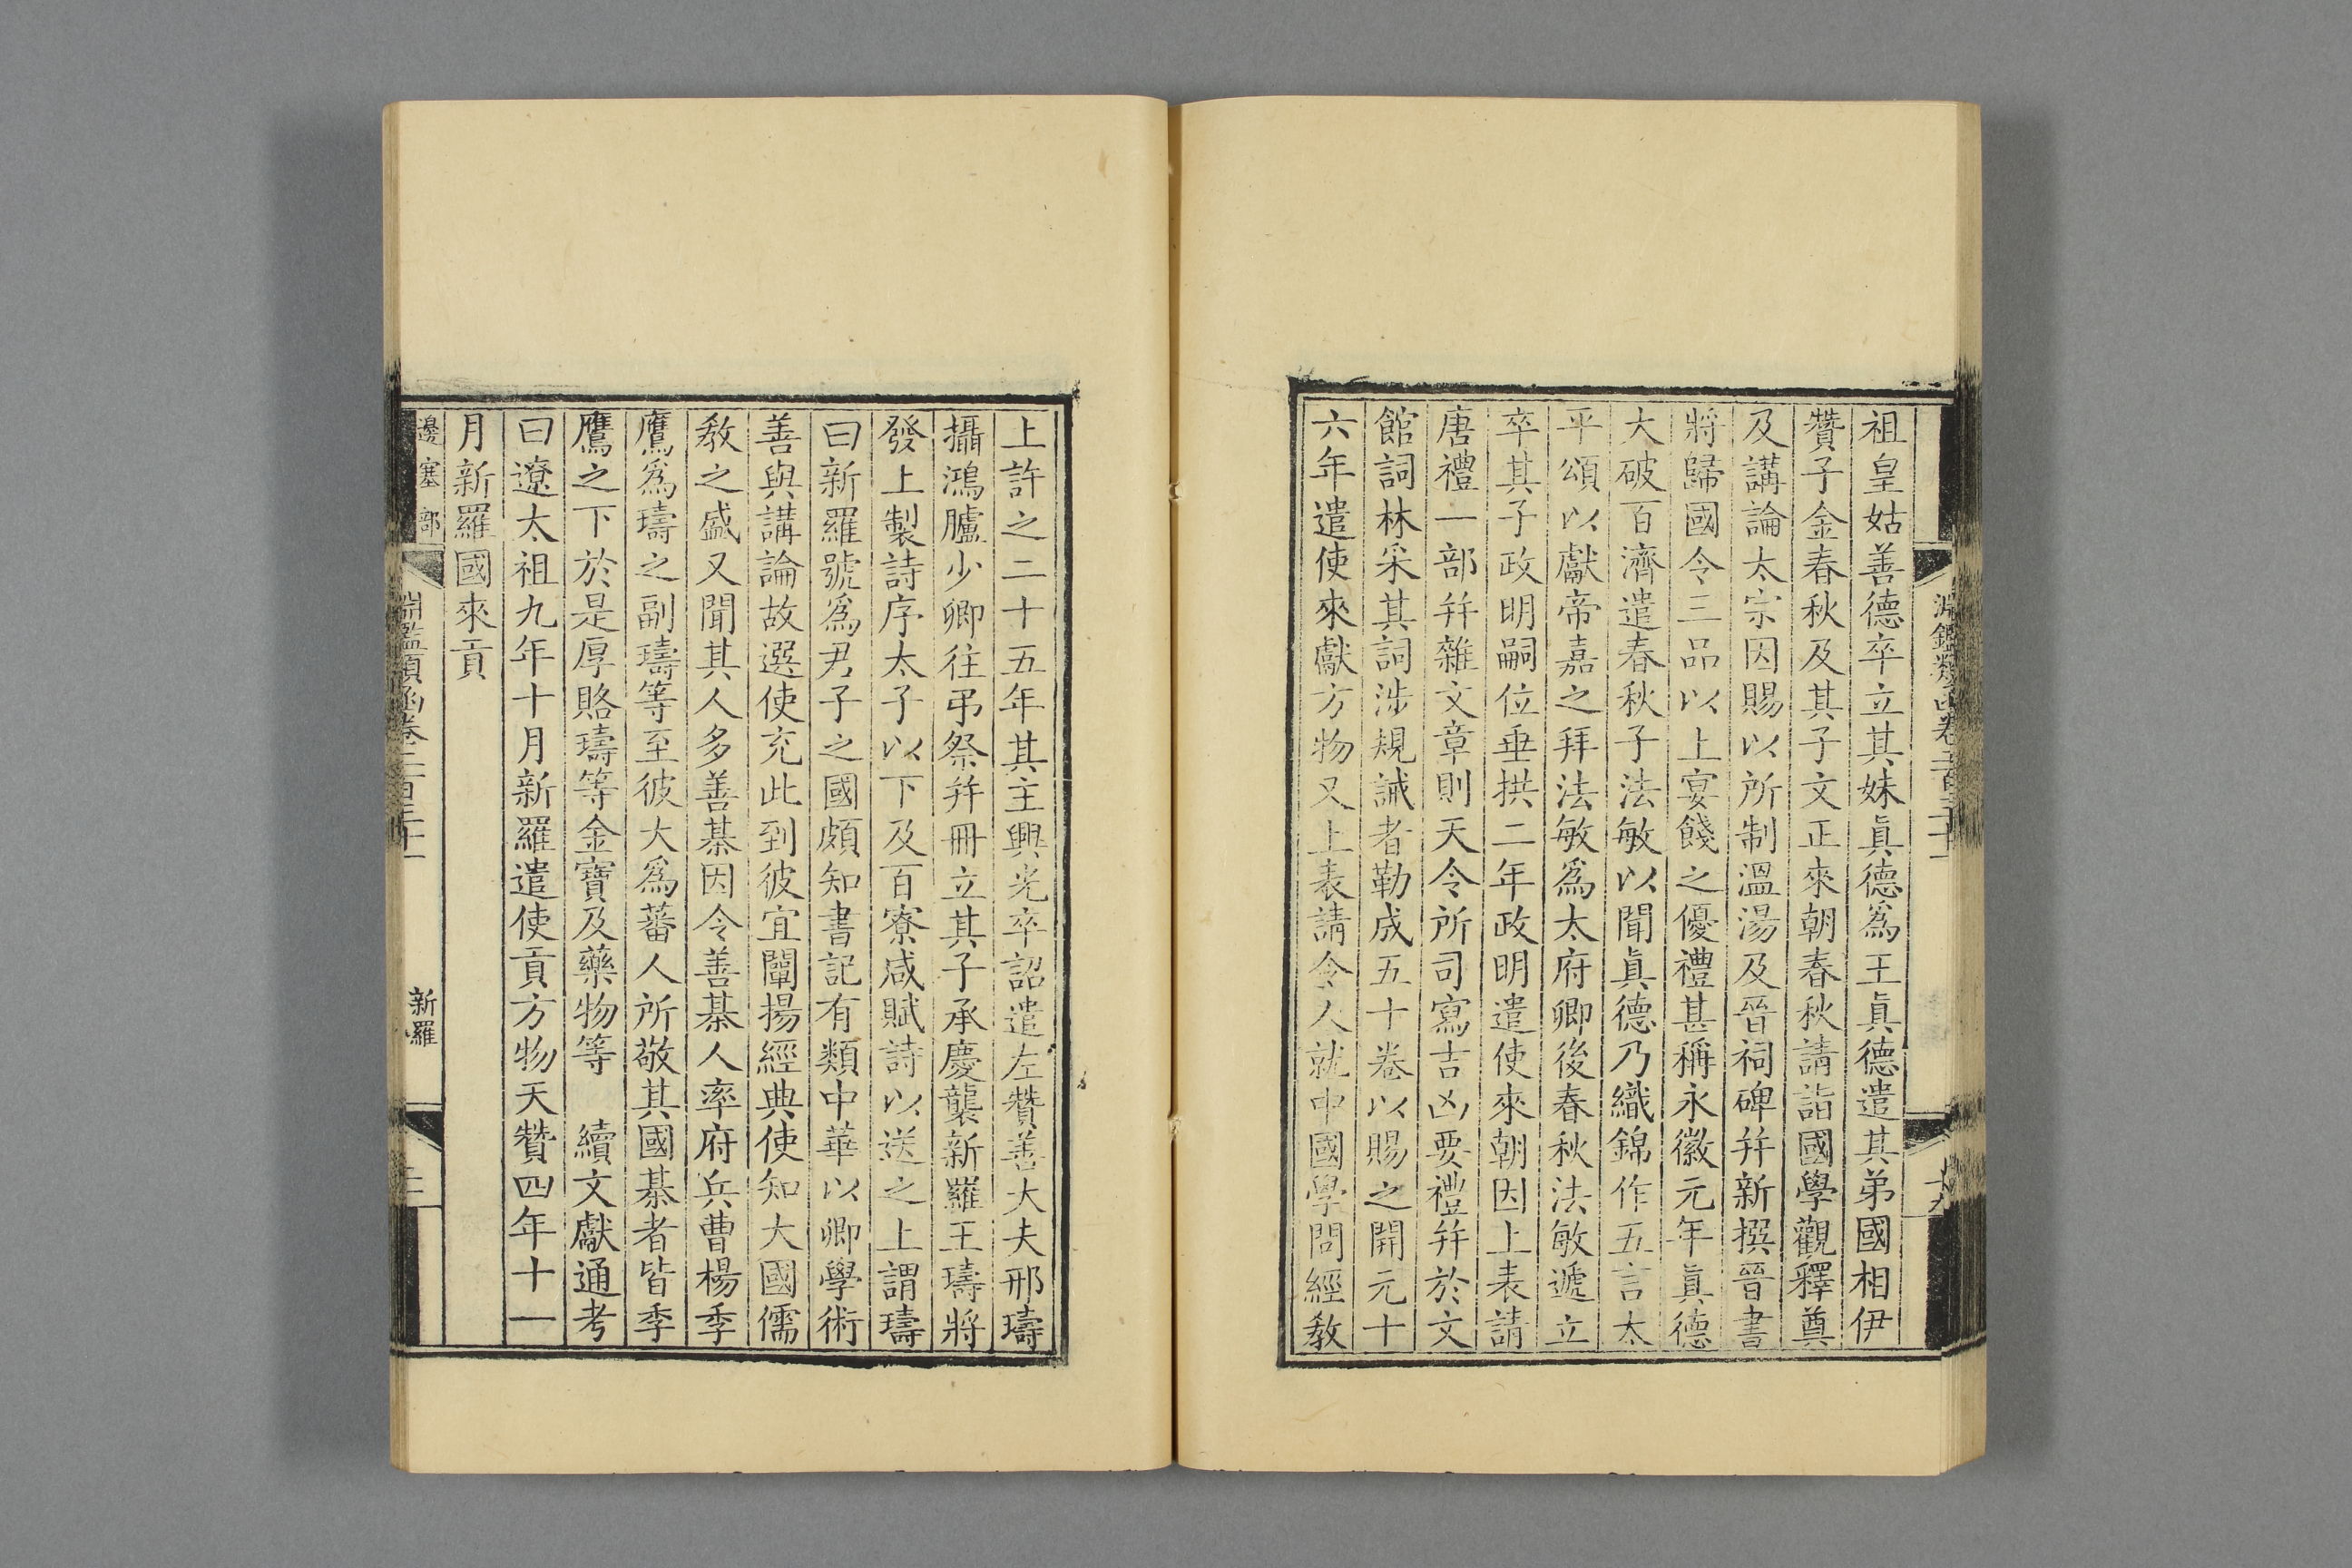 祖皇姑善德卒立其妹眞德爲王眞德遣其弟國相伊
贊子金春秋及其子文正來朝春秋請詣國學觀釋奠
及講論太宗因賜以所制溫湯及晉祠碑幷新撰晉書
將歸國令三品以上宴餞之優禮甚稱永徽元年眞德
大破百濟遣春秋子法敏以聞眞德乃織錦作五言太
平頌以獻帝嘉之拜法敏爲太府卿後春秋法敏遞立
卒其子政明嗣位垂拱二年政明遣使來朝因上表請
唐禮一部幷雜文章則天令所司寫吉凶要禮幷於文
館詞林采其詞涉規誡者勒成五十卷以賜之開元十
六年遣使來獻方物又上表請令人就中國學問經敎
上許之二十五年其主興光卒詔遣左贊善大夫邢璹
攝鴻臚少卿往弔祭幷冊立其子承慶襲新羅王璹將
發上製詩序太子以下及百寮咸賦詩以送之上謂璹
曰新羅號爲君子之國頗知書記有類中華以卿學術
善與講論故選使充此到彼宜闡揚經典使知大國儒
敎之盛又聞其人多善棊因令善棊人率府兵曹楊季
鷹爲璹之副璹等至彼大爲蕃人所敬其國棊者皆季
鷹之下於是厚賂璹等金寶及藥物等 續文獻通考
曰遼太祖九年十月新羅遣使貢方物天贊四年十一
月新羅國來貢
邊塞部
淵鑑類函卷二百三十一
新羅